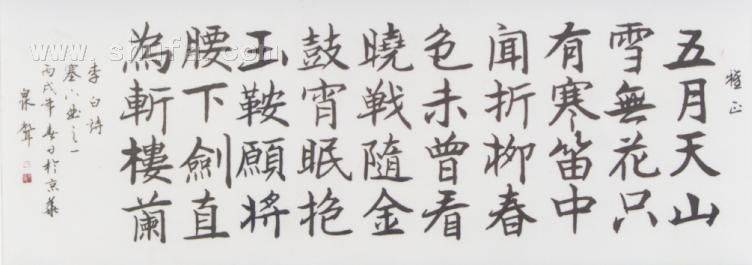 正
五月天山
雪無花只
有寒笛中
聞折柳春
色未曾看
曉戰隨金
鼓宵眠抱
玉鞍願將
腰下劍直
為斬樓蘭
李白詩
塞下曲之一
丙戌年春日於京華
泉聲